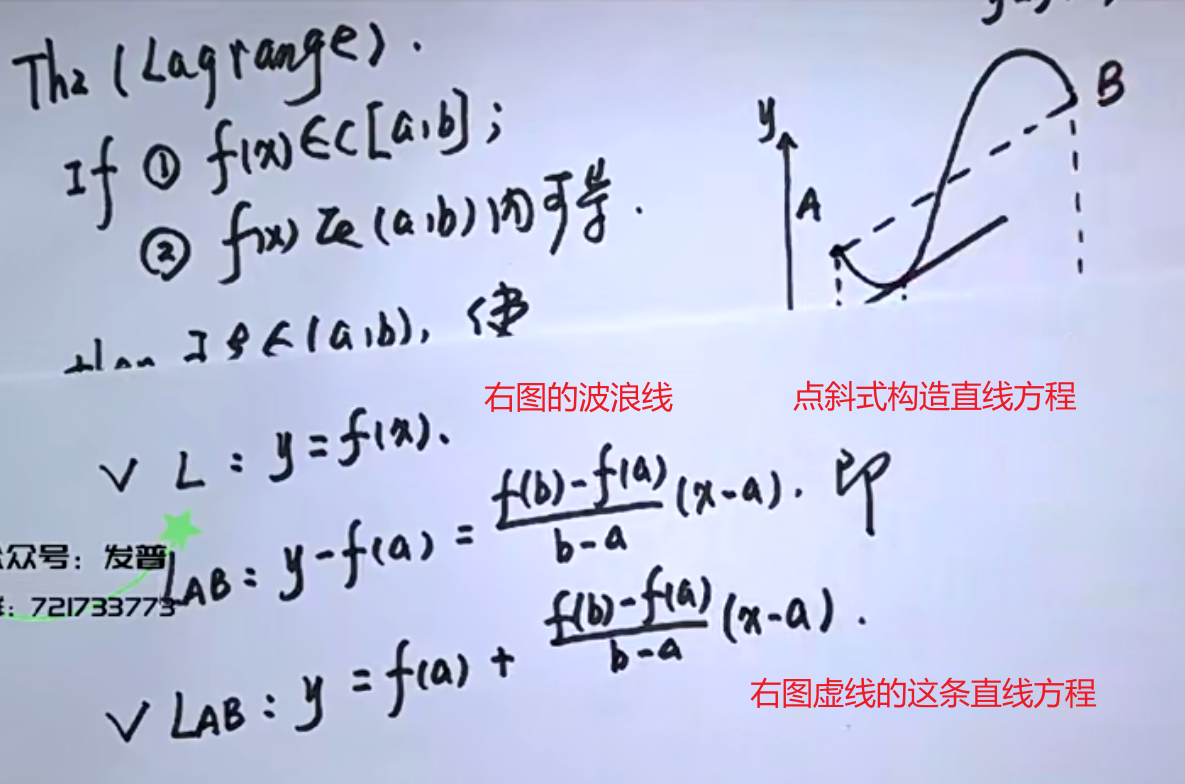 Th2 (Lagrange).
If ① f(x)∈C[a,b];
② f(x)在(a,b)内可导.
then ∃ξ∈(a,b), 使
y
A
B
右图的波浪线
点斜式构造直线方程
∨ L: y=f(x).
L_AB: y-f(a) = \frac{f(b)-f(a)}{b-a}(x-a). 即
众号：发普
：721733773
∨ L_AB: y = f(a) + \frac{f(b)-f(a)}{b-a}(x-a).
右图虚线的这条直线方程